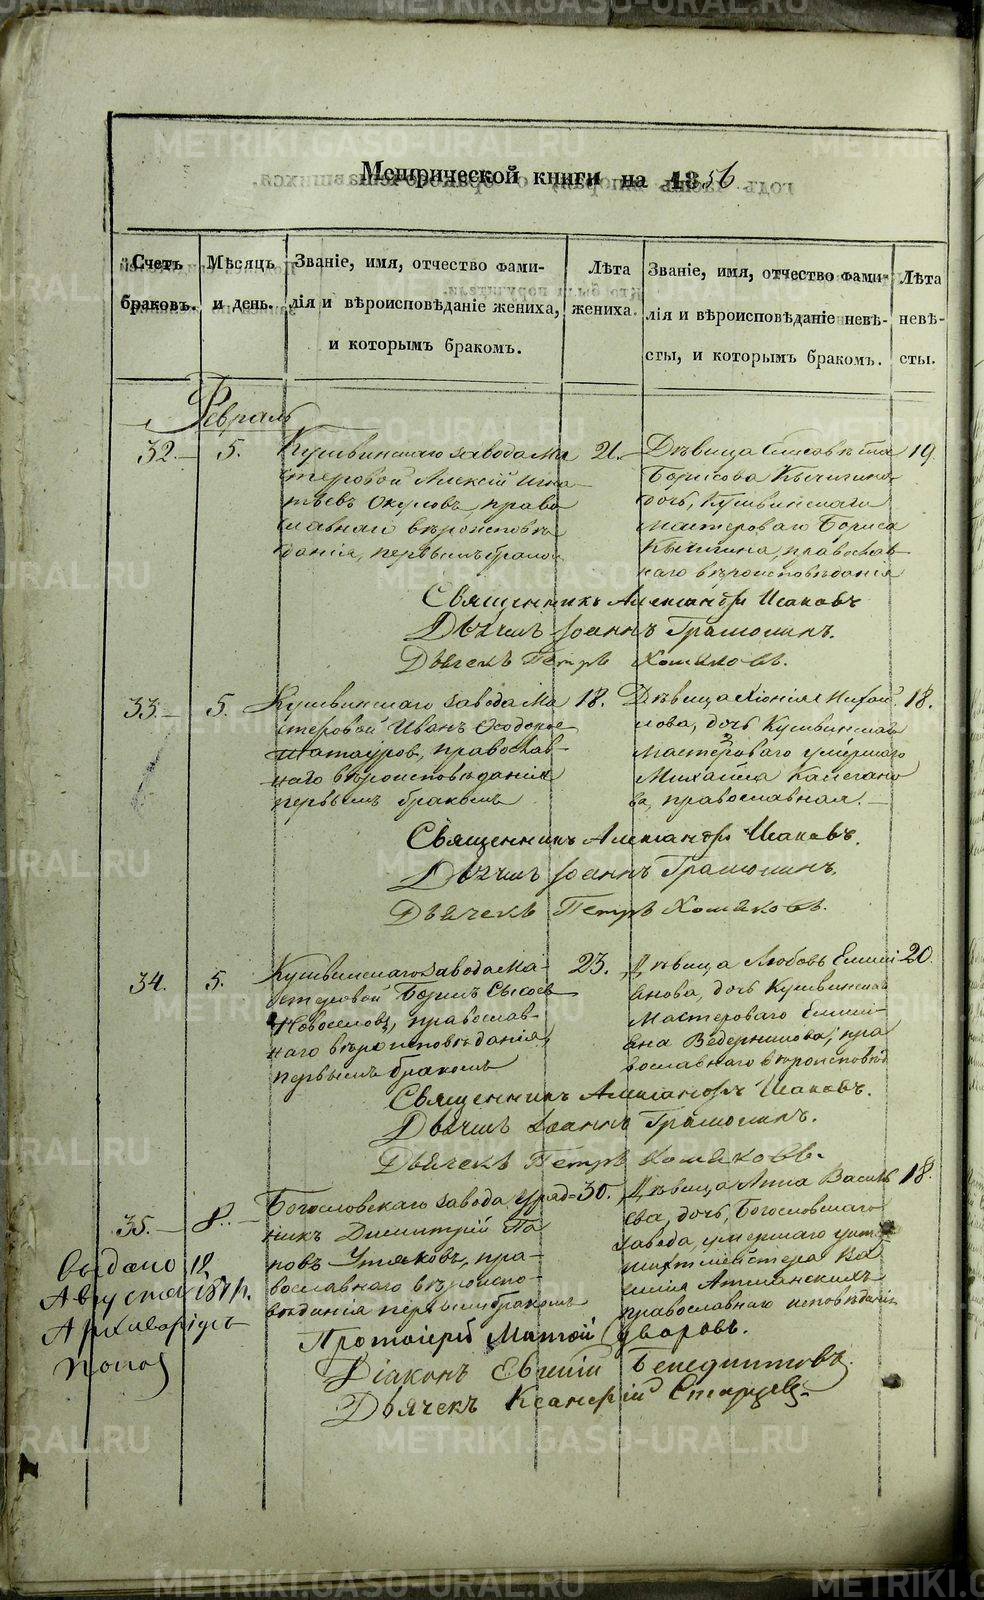 METRIKI.GASO-URAL.RU
Метрической книги на 1856
Счетъ браковъ.
Мѣсяцъ и день.
Званіе, имя, отчество фами-
лія и вѣроисповѣданіе жениха,
и которымъ бракомъ.
Лѣта жениха.
Званіе, имя, отчество фами-
лія и вѣроисповѣданіе невѣ-
сты, и которымъ бракомъ.
Лѣта невѣ-
сты.
Февраль
32. 5.
Кушвинскаго завода Ма
стеровой Алексій Игна
тьевъ Окуловъ, право
славнаго вѣроисповѣ
данія, первымъ бракомъ
21.
Дѣвица Елисавета
Борисова
дочь, Кушвинскаго
мастероваго Бориса
православ
наго вѣроисповѣданія
19.
Священникъ Александръ Исаковъ
Іоаннъ
Дьячекъ Петръ Хомяковъ.
33. 5.
Кушвинскаго завода Ма
стеровой Иванъ Ѳеодоров
православ-
наго вѣроисповѣданія
первымъ бракомъ
18.
Дѣвица Хіонія Михай
лова, дочь Кушвинскаго
мастероваго умершаго
Михайла
ва, православная.
18.
Священникъ Александръ Исаковъ.
Іоаннъ
Дьячекъ Петръ Хомяковъ.
34. 5.
Кушвинскаго завода Ма-
стеровой Борисъ Сысоев
Новоселовъ, православ-
наго вѣроисповѣданія,
первымъ бракомъ
23.
Дѣвица Любовь Емили
анова, дочь Кушвинскаго
Мастероваго Емили-
ана Ведерникова, пра
вославнаго вѣроисповѣд
20.
Священникъ Александръ Исаковъ.
Іоаннъ
Дьячекъ Петръ Хомяковъ.
35. 8.
Богословскаго завода Уряд=
никъ Димитрій Па
вовъ православнаго вѣроиспо-
вѣданія первымъ бракомъ
30.
Дѣвица Анна Василь
ева, дочь, Богословскаго
завода, умершаго
шихтмейстера Ва
силія
православнаго исповѣданія
18.
Выдано 12
Августа
Попов
Протоіерей
Діаконъ Евгеній Бенедиктовъ.
Дьячекъ Старцевъ.